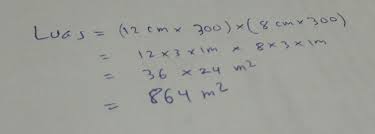 Luas = (12 cm x 300) x (8 cm x 300)
= 12 x 3 x 1m x 8 x 3 x 1m
= 36 x 24 m²
= 864 m²